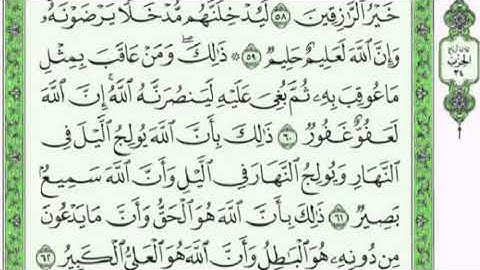 خَيْرُ ٱلرَّٰزِقِينَ ٥٨ لَيُدْخِلَنَّهُم مُّدْخَلًا يَرْضَوْنَهُۥ
وَإِنَّ ٱللَّهَ لَعَلِيمٌ حَلِيمٌ ٥٩ ۞ ذَٰلِكَۖ وَمَنْ عَاقَبَ بِمِثْلِ
مَا عُوقِبَ بِهِۦ ثُمَّ بُغِىَ عَلَيْهِ لَيَنصُرَنَّهُ ٱللَّهُۚ إِنَّ ٱللَّهَ
لَعَفُوٌّ غَفُورٌ ٦٠ ذَٰلِكَ بِأَنَّ ٱللَّهَ يُولِجُ ٱلَّيْلَ فِى
ٱلنَّهَارِ وَيُولِجُ ٱلنَّهَارَ فِى ٱلَّيْلِ وَأَنَّ ٱللَّهَ سَمِيعٌۢ
بَصِيرٌ ٦١ ذَٰلِكَ بِأَنَّ ٱللَّهَ هُوَ ٱلْحَقُّ وَأَنَّ مَا يَدْعُونَ
مِن دُونِهِۦ هُوَ ٱلْبَٰطِلُ وَأَنَّ ٱللَّهَ هُوَ ٱلْعَلِىُّ ٱلْكَبِيرُ ٦٢
الحزب
٣٤